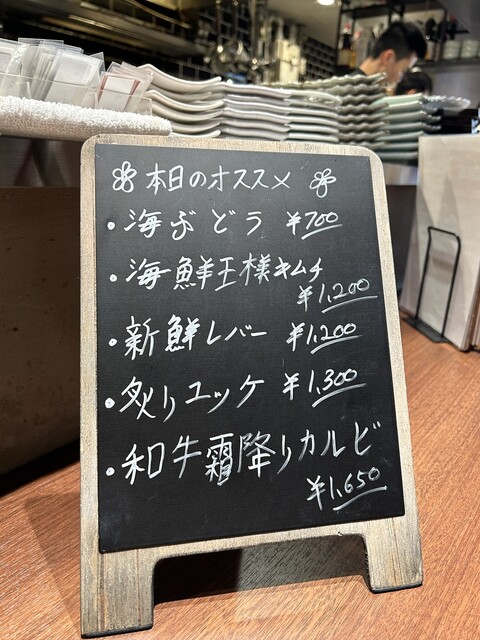 本日のオススメ
・海ぶどう ¥700
・海鮮王様キムチ
¥1,200
・新鮮レバー ¥1,200
・炙りユッケ ¥1,300
・和牛霜降りカルビ
¥1,650